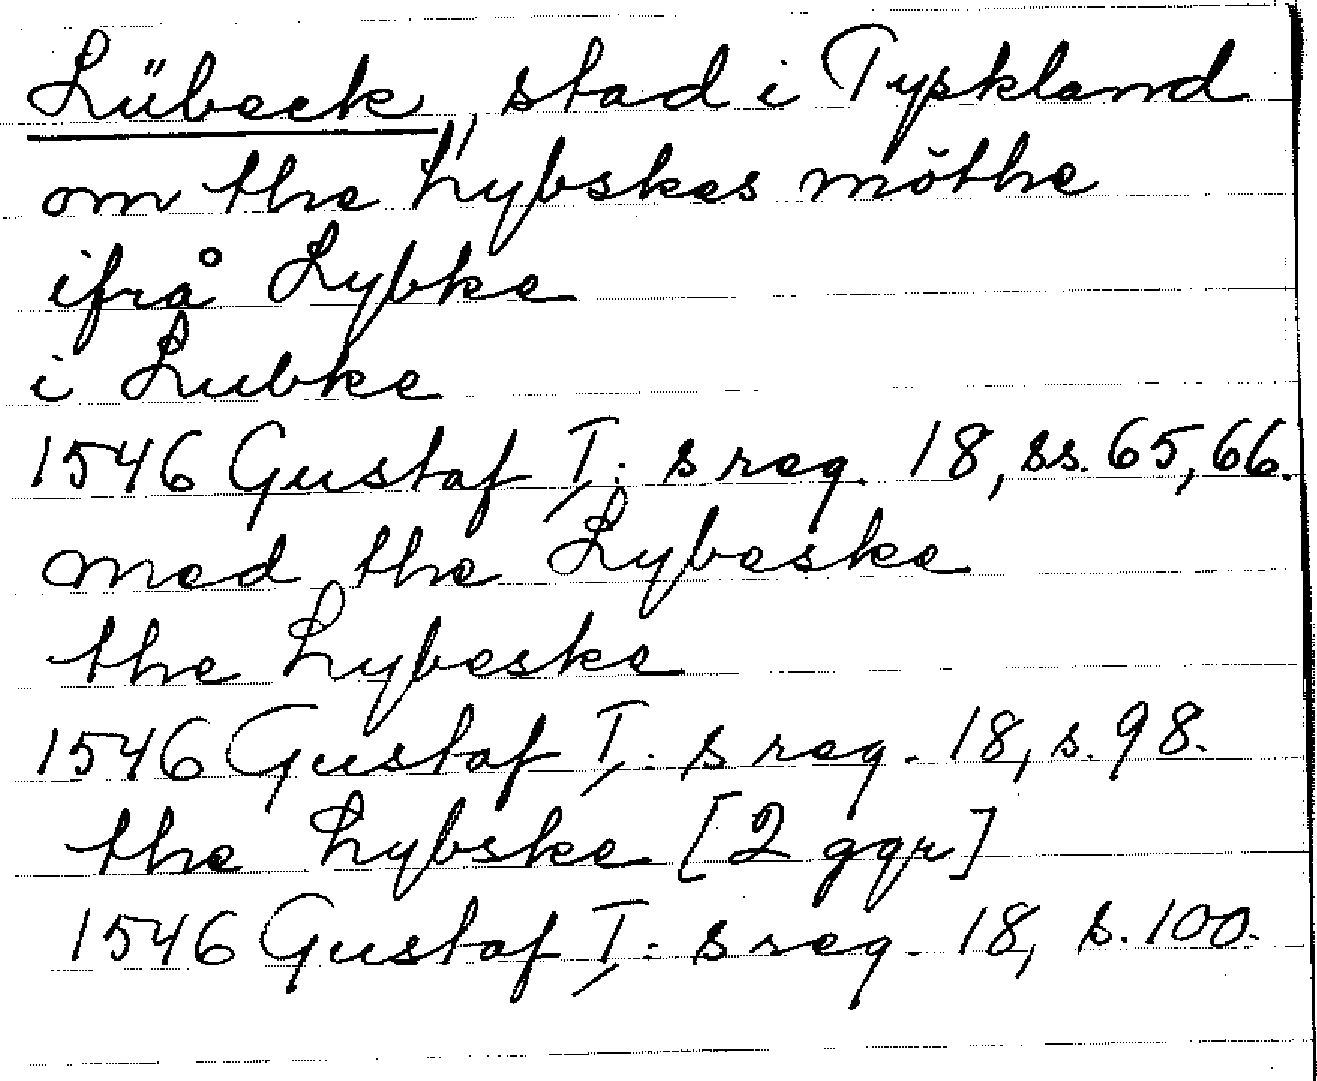 Lübeck, stad i Tyskland
om the Lybskes möthe
ifrå Lybke
i Lubke
1546 Gustaf I: s reg. 18, ss. 65, 66.
med the Lybeske
the Lybeske
1546 Gustaf I: s reg. 18, s. 98.
the Lybske [2 ggr]
1546 Gustaf I: s reg. 18, s. 100.